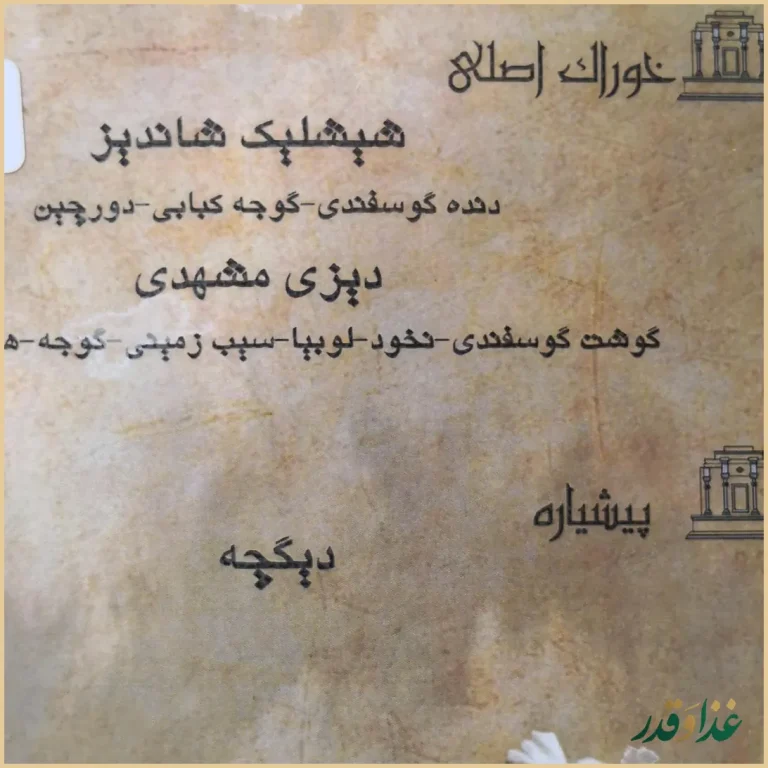 خوراک اصلی
شیشلیک شاندیز
دنده گوسفندی-گوجه کبابی-دورچین
دیزی مشهدی
گوشت گوسفندی-نخود-لوبیا-سیب زمینی-گوجه-
پیشیاره
دیگچه
غذا و قدر